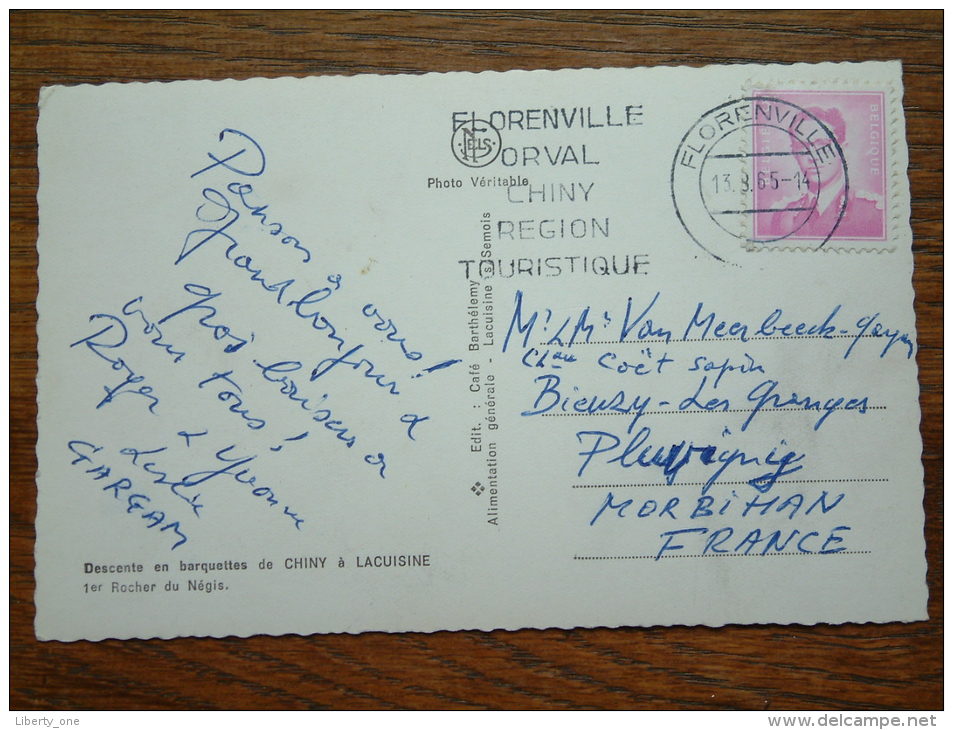 Pensons à vous!
Grand bonjour &
gros baisers à
vous tous!
Roger & Yvonne
Leslie
GARGAM
Descente en barquettes de CHINY à LACUISINE
1er Rocher du Négis.
NELS
Photo Véritable
Edit. : Café Barthélemy
Alimentation générale - Lacuisine s/Semois
FLORENVILLE
ORVAL
CHINY
REGION
TOURISTIQUE
FLORENVILLE
13.8.65-14
BELGIQUE
Mr & Me Van Meerbeeck-
Chau Coët sapin
Bieuzy-Les Granges
Pluvignig
MORBIHAN
FRANCE
Liberty_one
delcampe.net